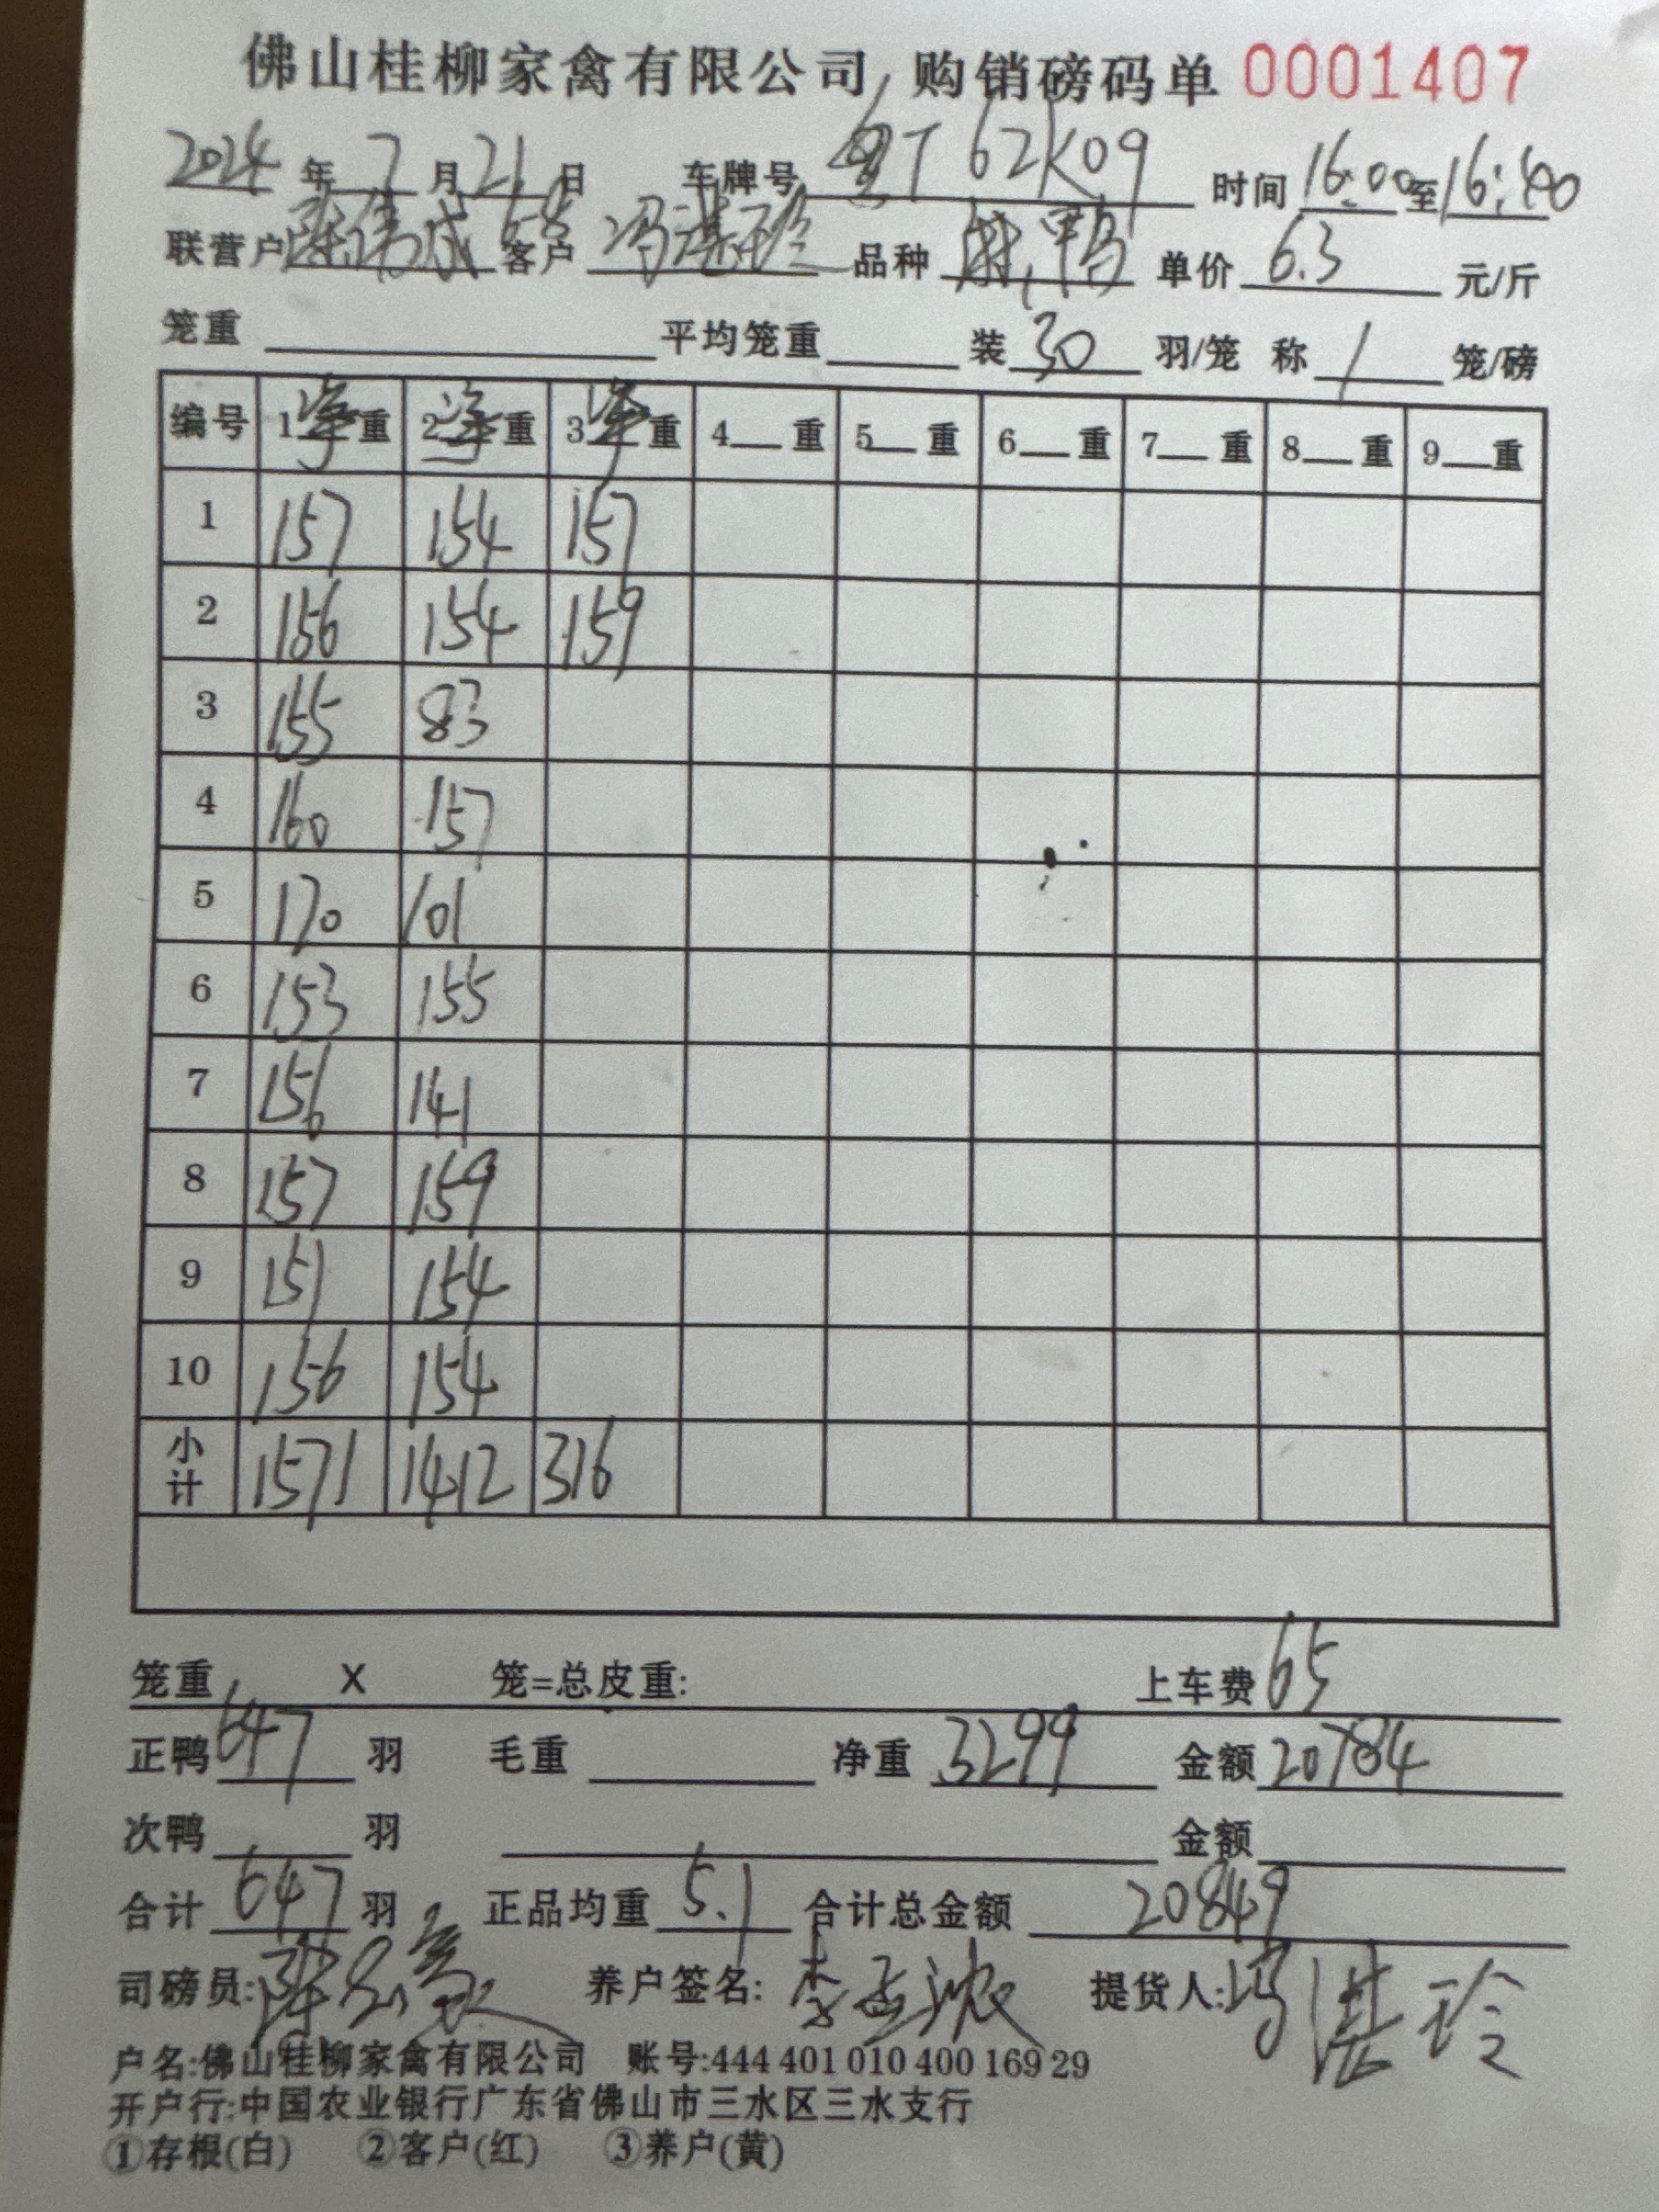 佛山桂柳家禽有限公司 购销磅码单 0001407
2024 年 7 月 21 日 车牌号 粤T 62K09 时间 16:00 至 16:40
联营户 陈伟成 客户 冯湛玲 品种 鸭 单价 6.3 元/斤
笼重 平均笼重 装 30 羽/笼 称 1 笼/磅
编号 1净重 2净重 3净重 4__重 5__重 6__重 7__重 8__重 9__重
1 157 154 157
2 156 154 159
3 155 83
4 160 157
5 170 101
6 153 155
7 156 141
8 157 159
9 151 154
10 156 154
小计 1571 1412 316
笼重 X 笼=总皮重: 上车费 65
正鸭 647 羽 毛重 净重 3299 金额 20784
次鸭 羽 金额
合计 647 羽 正品均重 5.1 合计总金额 20849
司磅员: 养户签名: 李 提货人: 冯湛玲
户名:佛山桂柳家禽有限公司 账号:444 401 010 400 169 29
开户行:中国农业银行广东省佛山市三水区三水支行
①存根(白) ②客户(红) ③养户(黄)